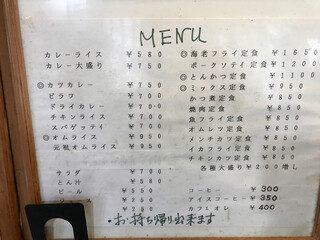 MENU
カレーライス ￥580
カレー大盛り ￥750
◎カラカレー ￥700
ピラフ ￥700
ドライカレー ￥700
チキンライス ￥700
スパゲッティ ￥700
◎オムライス ￥950
元祖オムライス ￥950
サラダ ￥700
とん汁
ビール
◎海老フライ定食 ￥1650
ポークソテイ定食 ￥1200
◎とんかつ定食 ￥1100
◎ミックス定食 ￥950
かつ煮定食 ￥850
焼肉定食 ￥850
魚フライ定食 ￥850
オムレツ定食 ￥850
メンチカツ定食 ￥850
イカフライ定食 ￥850
チキンカツ定食 ￥850
各種大盛り￥200増し
コーヒー ￥300
アイスコーヒー ￥350
カフェオレ ￥400
・お持ち帰り出来ます